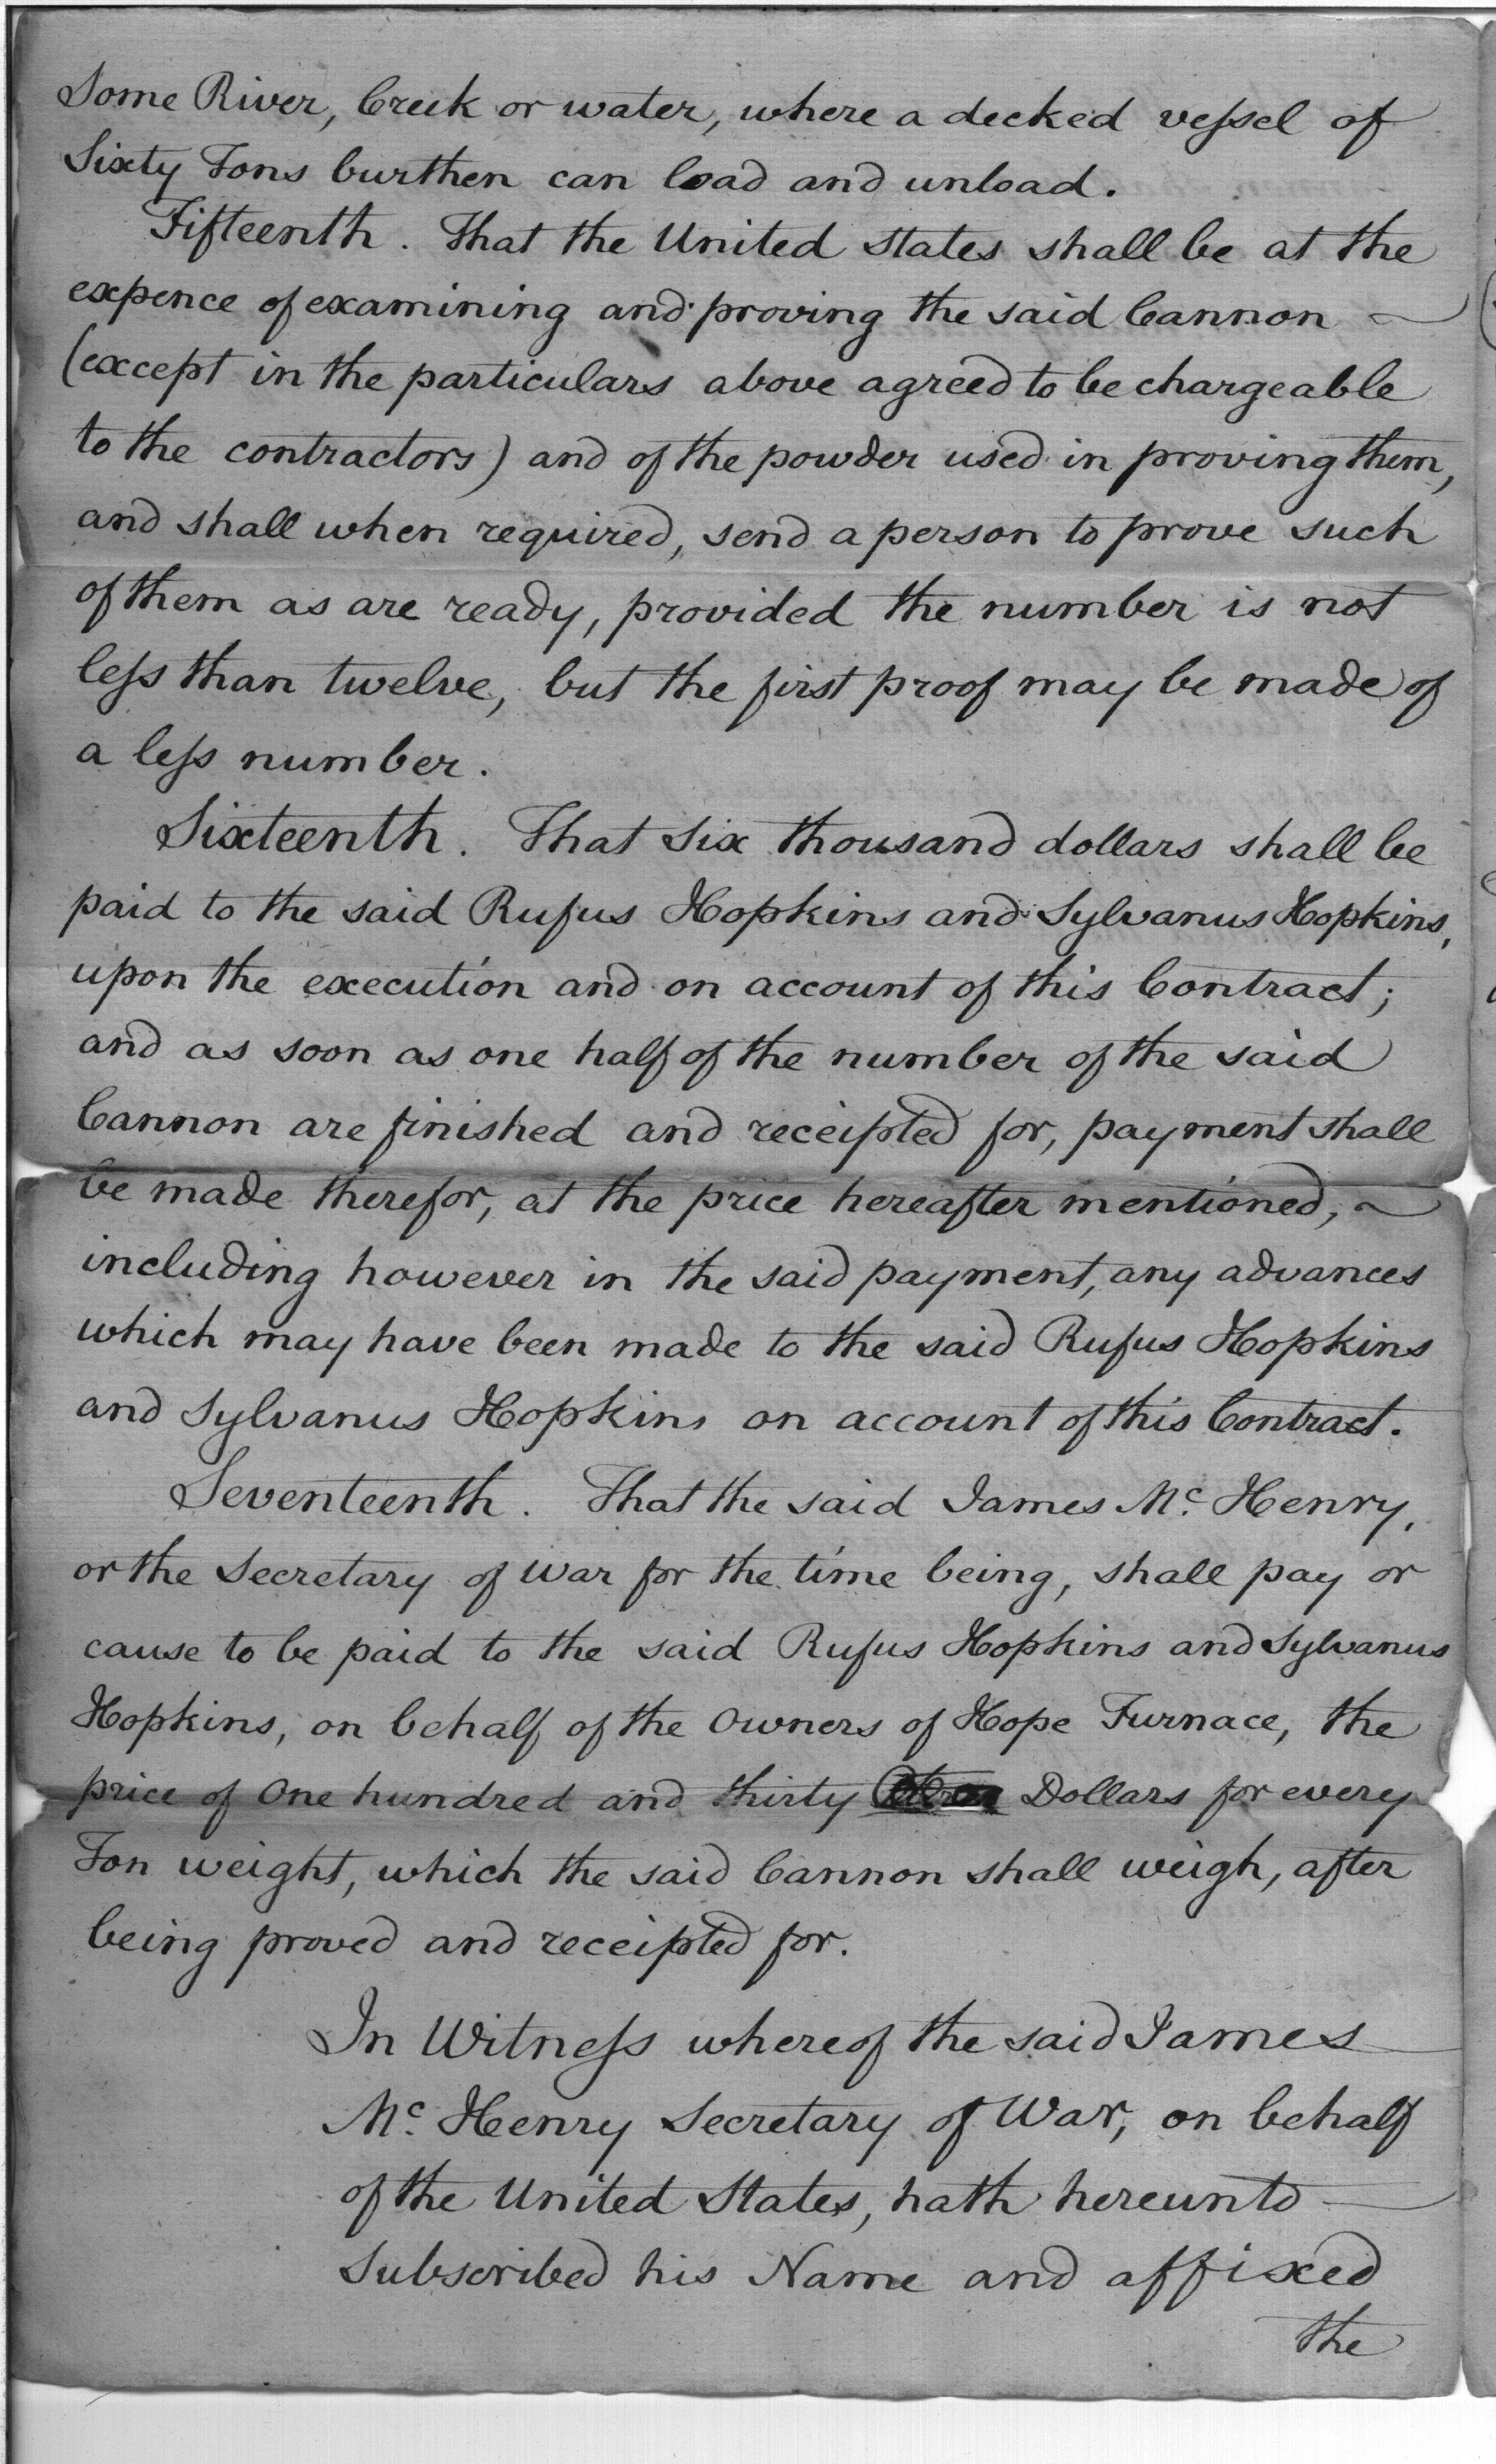 Some River, Creek or water, where a decked vessel of
Sixty Tons burthen can load and unload.
Fifteenth. That the United States shall be at the
expence of examining and proving the said Cannon
(except in the particulars above agreed to be chargeable
to the contractors) and of the powder used in proving them,
and shall when required, send a person to prove such
of them as are ready, provided the number is not
less than twelve, but the first proof may be made of
a less number.
Sixteenth. That Six thousand dollars shall be
paid to the said Rufus Hopkins and Sylvanus Hopkins,
upon the execution and on account of this Contract;
and as soon as one half of the number of the said
Cannon are finished and receipted for, payment shall
be made therefor, at the price hereafter mentioned,
including however in the said payment, any advances
which may have been made to the said Rufus Hopkins
and Sylvanus Hopkins on account of this Contract.
Seventeenth. That the said James Mc. Henry,
or the Secretary of War for the time being, shall pay or
cause to be paid to the said Rufus Hopkins and Sylvanus
Hopkins, on behalf of the Owners of Hope Furnace, the
price of One hundred and thirty Dollars for every
Ton weight, which the said Cannon shall weigh, after
being proved and receipted for.
In Witness whereof the said James
Mc. Henry Secretary of War, on behalf
of the United States, hath hereunto
Subscribed his Name and affixed
the